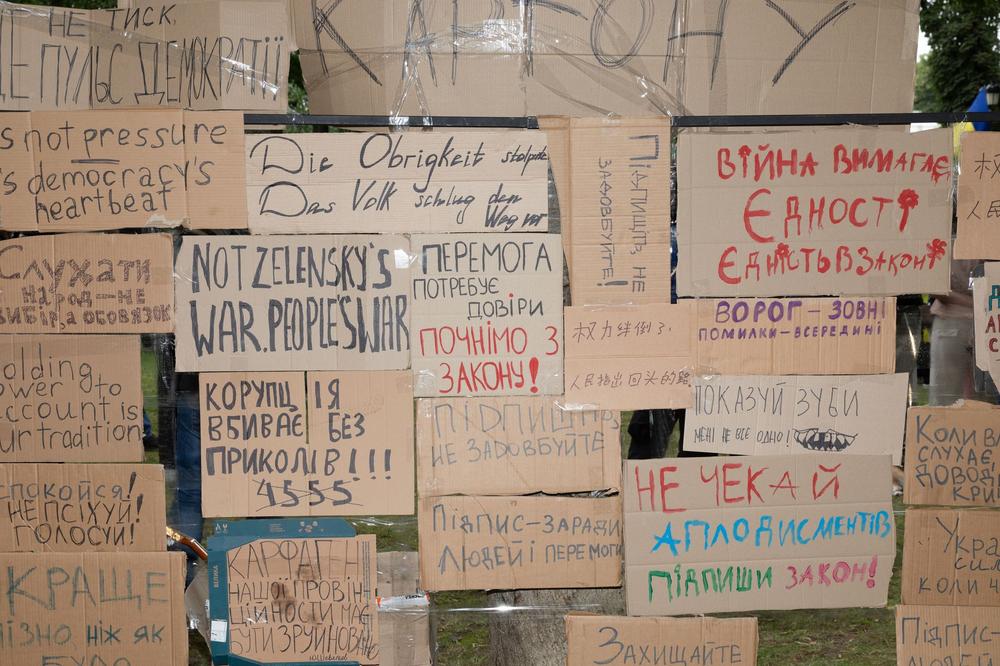 НЕ ТИСК,
ПУЛЬС ДЕМОКРАТІЇ
КАРГОНУ
s not pressure
's democracy's
heartbeat
Die Obrigkeit stolperte
Das Volk schlug den
Weg vor
ПІДПИШІТЬ, НЕ
ЗАЙОВБУЙТЕ!
ВІЙНА ВИМАГАЄ
ЄДНОСТІ
ЄДНІСТЬ В ЗАКОНІ
СЛУХАТИ
НАРОД—НЕ
ВИБІР, А ОБОВЯЗОК
NOT ZELENSKY'S
WAR. PEOPLE'S WAR
ПЕРЕМОГА
ПОТРЕБУЄ
ДОВІРИ
ПОЧНІМО З
ЗАКОНУ!
权力绊倒了.
人民指出回头的路
ВОРОГ – ЗОВНІ
ПОМИЛКИ – ВСЕРЕДИНІ
olding
ower to
ccount is
ur tradition
КОРУПЦІЯ
ВБИВАЄ БЕЗ
ПРИКОЛІВ!!!
4555
ПІДПИШІТЬ
НЕ ЗАЙОВБУЙТЕ
ПОКАЗУЙ ЗУБИ
МЕНІ НЕ ВСЕ ОДНО!
КОЛИ ВЛ
СЛУХАЄ,
ДОВОД
КРИ
СПОКОЙСЯ!
НЕ ПСІХУЙ!
ГОЛОСУЙ!
ПІДПИС–ЗАРАДИ
ЛЮДЕЙ І ПЕРЕМОГИ
НЕ ЧЕКАЙ
АПЛОДИСМЕНТІВ
ПІДПИШИ ЗАКОН!
КРАЩЕ
ПІЗНО НІЖ ЯК
БУЛО
КАРФАГЕН
НАШОЇ ПРОВІН
ЦІЙНОСТИ МАЄ
БУТИ ЗРУЙНОВАНО
Ю.Шевельов
УКРА
СИЛ
КОЛИ Ч
ЗАХИЩАЙТЕ
ПІДПИС–